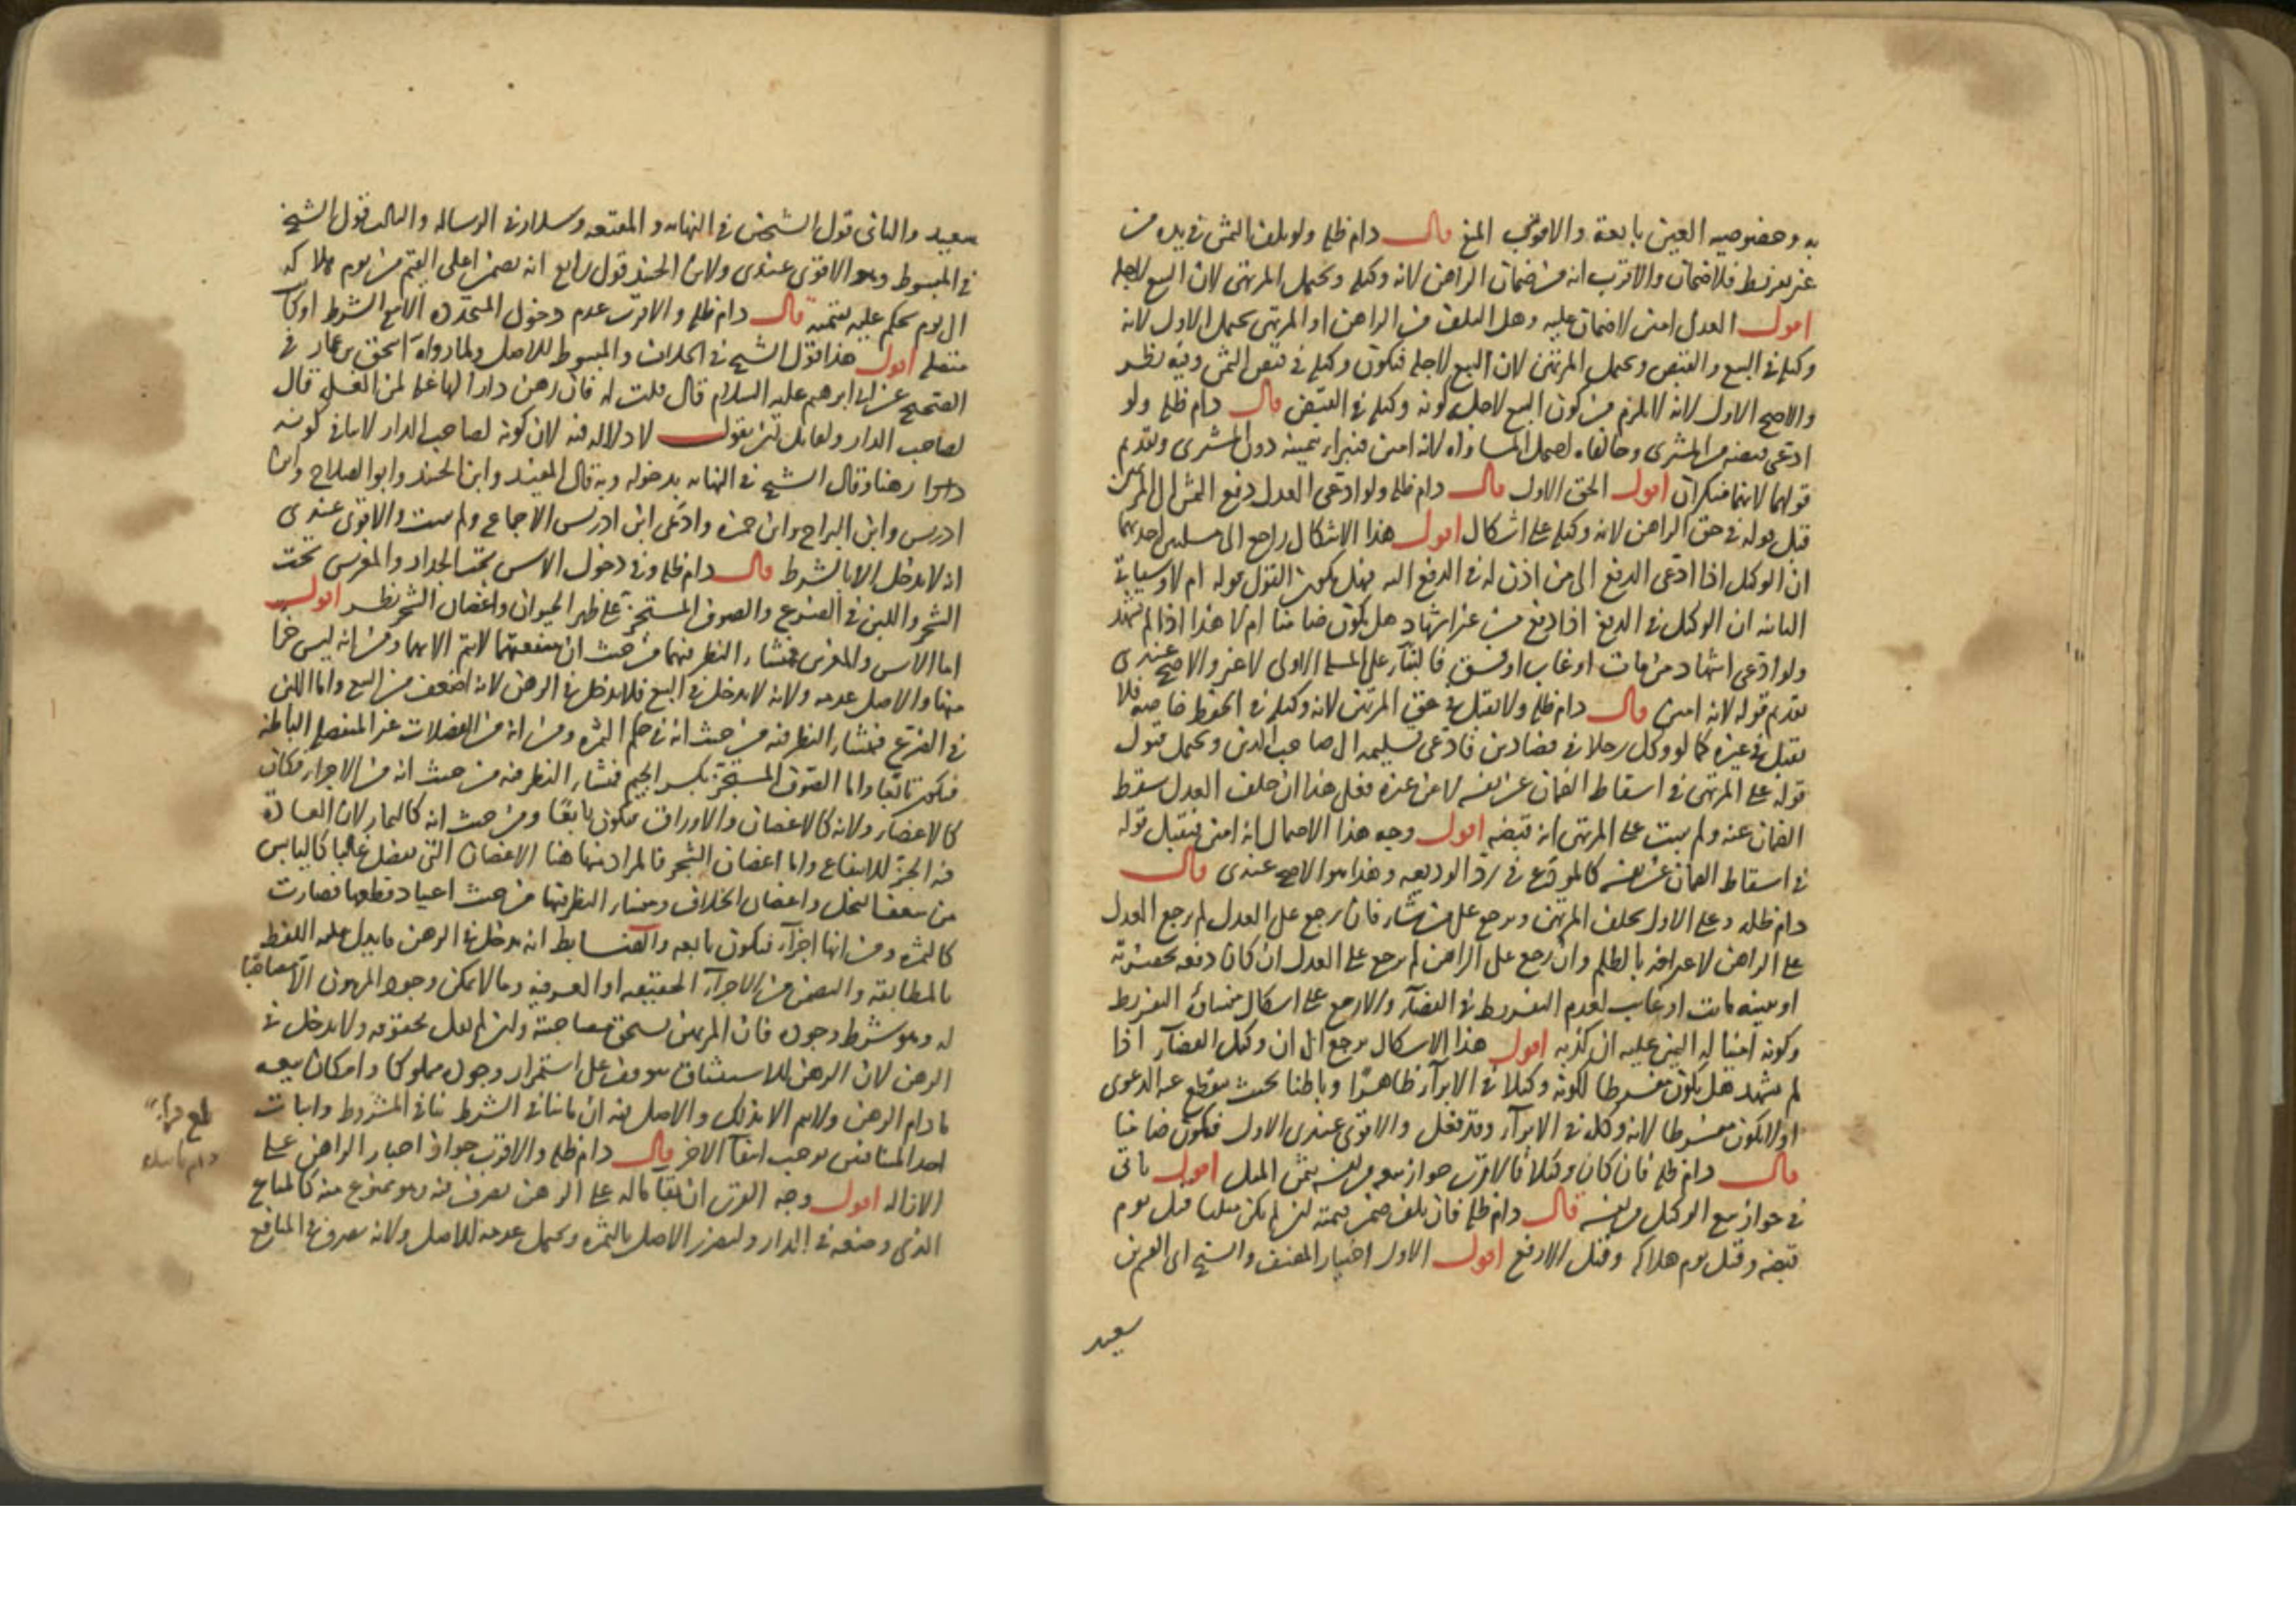 به وخصوصيه العين تابعة والاقوى المنع قال دام ظله ولو تلف الثمن في يده من
غير تفريط فلا ضمان والاقرب انه من ضمان الراهن لانه وكيله ويحتمل المرتهن لان البيع لاجله
اقول العدل امين لا ضمان عليه وهل التلف من الراهن او المرتهن يحتمل الاول لانه
وكيله في البيع والقبض ويحتمل المرتهن لان البيع لاجله فيكون وكيله في قبض الثمن وفيه نظر
والاصح الاول لانه لا يلزم من كون البيع لاجله كونه وكيله في القبض قال دام ظله ولو
ادعى قبضه من المشتري وخالفاه احتمل المساواه لانه امين فيبرأ بيمينه دون المشتري وتقديم
قولهما لانهما منكران اقول الحق الاول قال دام ظله ولو ادعى العدل دفع الثمن الى المرتهن
قبل قوله في حق الراهن لانه وكيله على اشكال اقول هذا الاشكال راجع الى مسئلتين احديهما
ان الوكيل اذا ادعى الدفع الى من اذن له في الدفع اليه فهل يكون القول قوله ام لا وسياتي
الثانيه ان الوكيل في الدفع اذا دفع من غير اشهاد هل يكون ضامنا ام لا هذا اذا لم يشهد
ولو ادعى اشهاد من مات او غاب او فسق فالبناء على المسئلة الاولى لا غير والاصح عندي
تقديم قوله لانه امين قال دام ظله ولا يقبل في حق المرتهن لانه وكيله في الحفظ خاصه فلا
يقبل في غيره كما لو وكل رجلا في قضاء دين فادعى تسليمه الى صاحب الدين ويحتمل قبول
قوله على المرتهن في اسقاط الضمان عن نفسه لا عن غيره فعلى هذا ان حلف العدل سقط
الضمان عنه ولم يثبت على المرتهن انه قبضه اقول وجه هذا الاحتمال انه امين فيقبل قوله
في اسقاط الضمان عن نفسه كالمودع في رد الوديعه وهذا هو الاصح عندي قال
دام ظله وعلى الاول يحلف المرتهن ويرجع على من شاء فان رجع على العدل لم يرجع العدل
على الراهن لاعترافه بالظلم وان رجع على الراهن لم يرجع على العدل ان كان دفعه بحضرته
او ببينه ماتت او غابت لعدم التفريط في القضاء والا رجع على اشكال ينشأ من التفريط
وكونه امينا له اليمين عليه ان كذبه اقول هذا الاشكال يرجع الى ان وكيل القضاء اذا
لم يشهد هل يكون مفرطا لكونه وكيلا في الابراء ظاهرا وباطنا بحيث ينقطع عنه الدعوى
او لا يكون مفرطا لانه وكله في الابراء وقد فعل والاقوى عندي الاول فيكون ضامنا
قال دام ظله فان كان وكيلا فالاقرب جواز بيعه من نفسه بثمن المثل اقول ياتي
في جواز بيع الوكيل من نفسه قال دام ظله فان تلف ضمن قيمته ان لم يكن مثليا قبل يوم
قبضه وقيل يوم هلاكه وقيل الارفع اقول الاول اختيار المصنف والشيخ ابي القسم بن
سعيد
سعيد والثاني قول الشيخين في النهايه والمقنعه وسلار في الرساله والثالث قول الشيخ
في المبسوط وهو الاقوى عندي ولابن الجنيد قول رابع انه يضمن اعلى القيم من يوم هلاكه
الى يوم يحكم عليه بقيمته قال دام ظله والاقرب عدم دخول المتجدده الا مع الشرط او كان
متصلا اقول هذا قول الشيخ في الخلاف والمبسوط للاصل ولما رواه اسحق بن عمار في
الصحيح عن ابي ابراهيم عليه السلام قال قلت له فان رهن دارا لها غلة لمن الغلة قال
لصاحب الدار ولقائل ان يقول لا دلاله فيه لان كونه لصاحب الدار لا ينافي كونه
رهنا وقال الشيخ في النهايه بدخوله وبه قال المفيد وابن الجنيد وابو الصلاح وابن
ادريس وابن البراج وابن حمزه وادعى ابن ادريس الاجماع ولم يثبت والاقوى عندي
انه لا يدخل الا بالشرط قال دام ظله وفي دخول الاس تحت الجدار والمغرس تحت
الشجر واللبن في الضرع والصوف المستجز على ظهر الحيوان واغصان الشجر نظر اقول
اما الاس والمغرس فمنشاء النظر فيهما من حيث ان منفعتهما لا تتم الا بهما ومن انه ليس جزءا
منها والاصل عدمه ولانه لا يدخل في البيع فلا يدخل في الرهن لانه اضعف من البيع واما اللبن
في الضرع فمنشاء النظر فيه من حيث انه في حكم الثمره ومن انه من الفضلات غير المنفصله الباطنه
فيكون تابعا واما الصوف المستجز بكسر الجيم فمنشاء النظر فيه من حيث انه من الاجزاء فكان
كالاعضاء ولانه كالاغصان والاوراق فيكون تابعا ومن حيث انه كالثمار لان العاده
فيه الجز للانتفاع واما اغصان الشجر فالمراد منها هنا الاغصان التي تفصل غالبا كاليابس
من سعف النخل واغصان الخلاف ومنشاء النظر فيها من حيث اعتياد قطعها فصارت
كالثمره ومن انها اجزاء فيكون تابعه والضابط انه يدخل في الرهن ما يدل عليه اللفظ
بالمطابقه والتضمن من الاجزاء الحقيقيه او العرفيه وما لا يمكن وجود المرهون الا مصاحبا
له وهو شرط وجوده فان المرتهن يستحق مصاحبته وان لم نقل بحقوقه ولا يدخل في
الرهن لان الرهن للاستيثاق موقوف على استمرار وجوده مملوكا وامكان بيعه
مادام الرهن ولا يتم الا بذلك والاصل فيه ان ما ينافي الشرط ينافي المشروط واثبات
احد المتنافيين يوجب انتفاء الاخر قال دام ظله والاقرب جواز اجبار الراهن على
الازاله اقول وجه القرب ان بقاء ماله على الرهن تصرف فيه وهو ممنوع منه كالمتاع
الذي وضعه في الدار ولتضرر الاصل بالثمره ويحتمل عدمه للاصل ولانه تصرف في المنافع
بلغ قراءة
دام